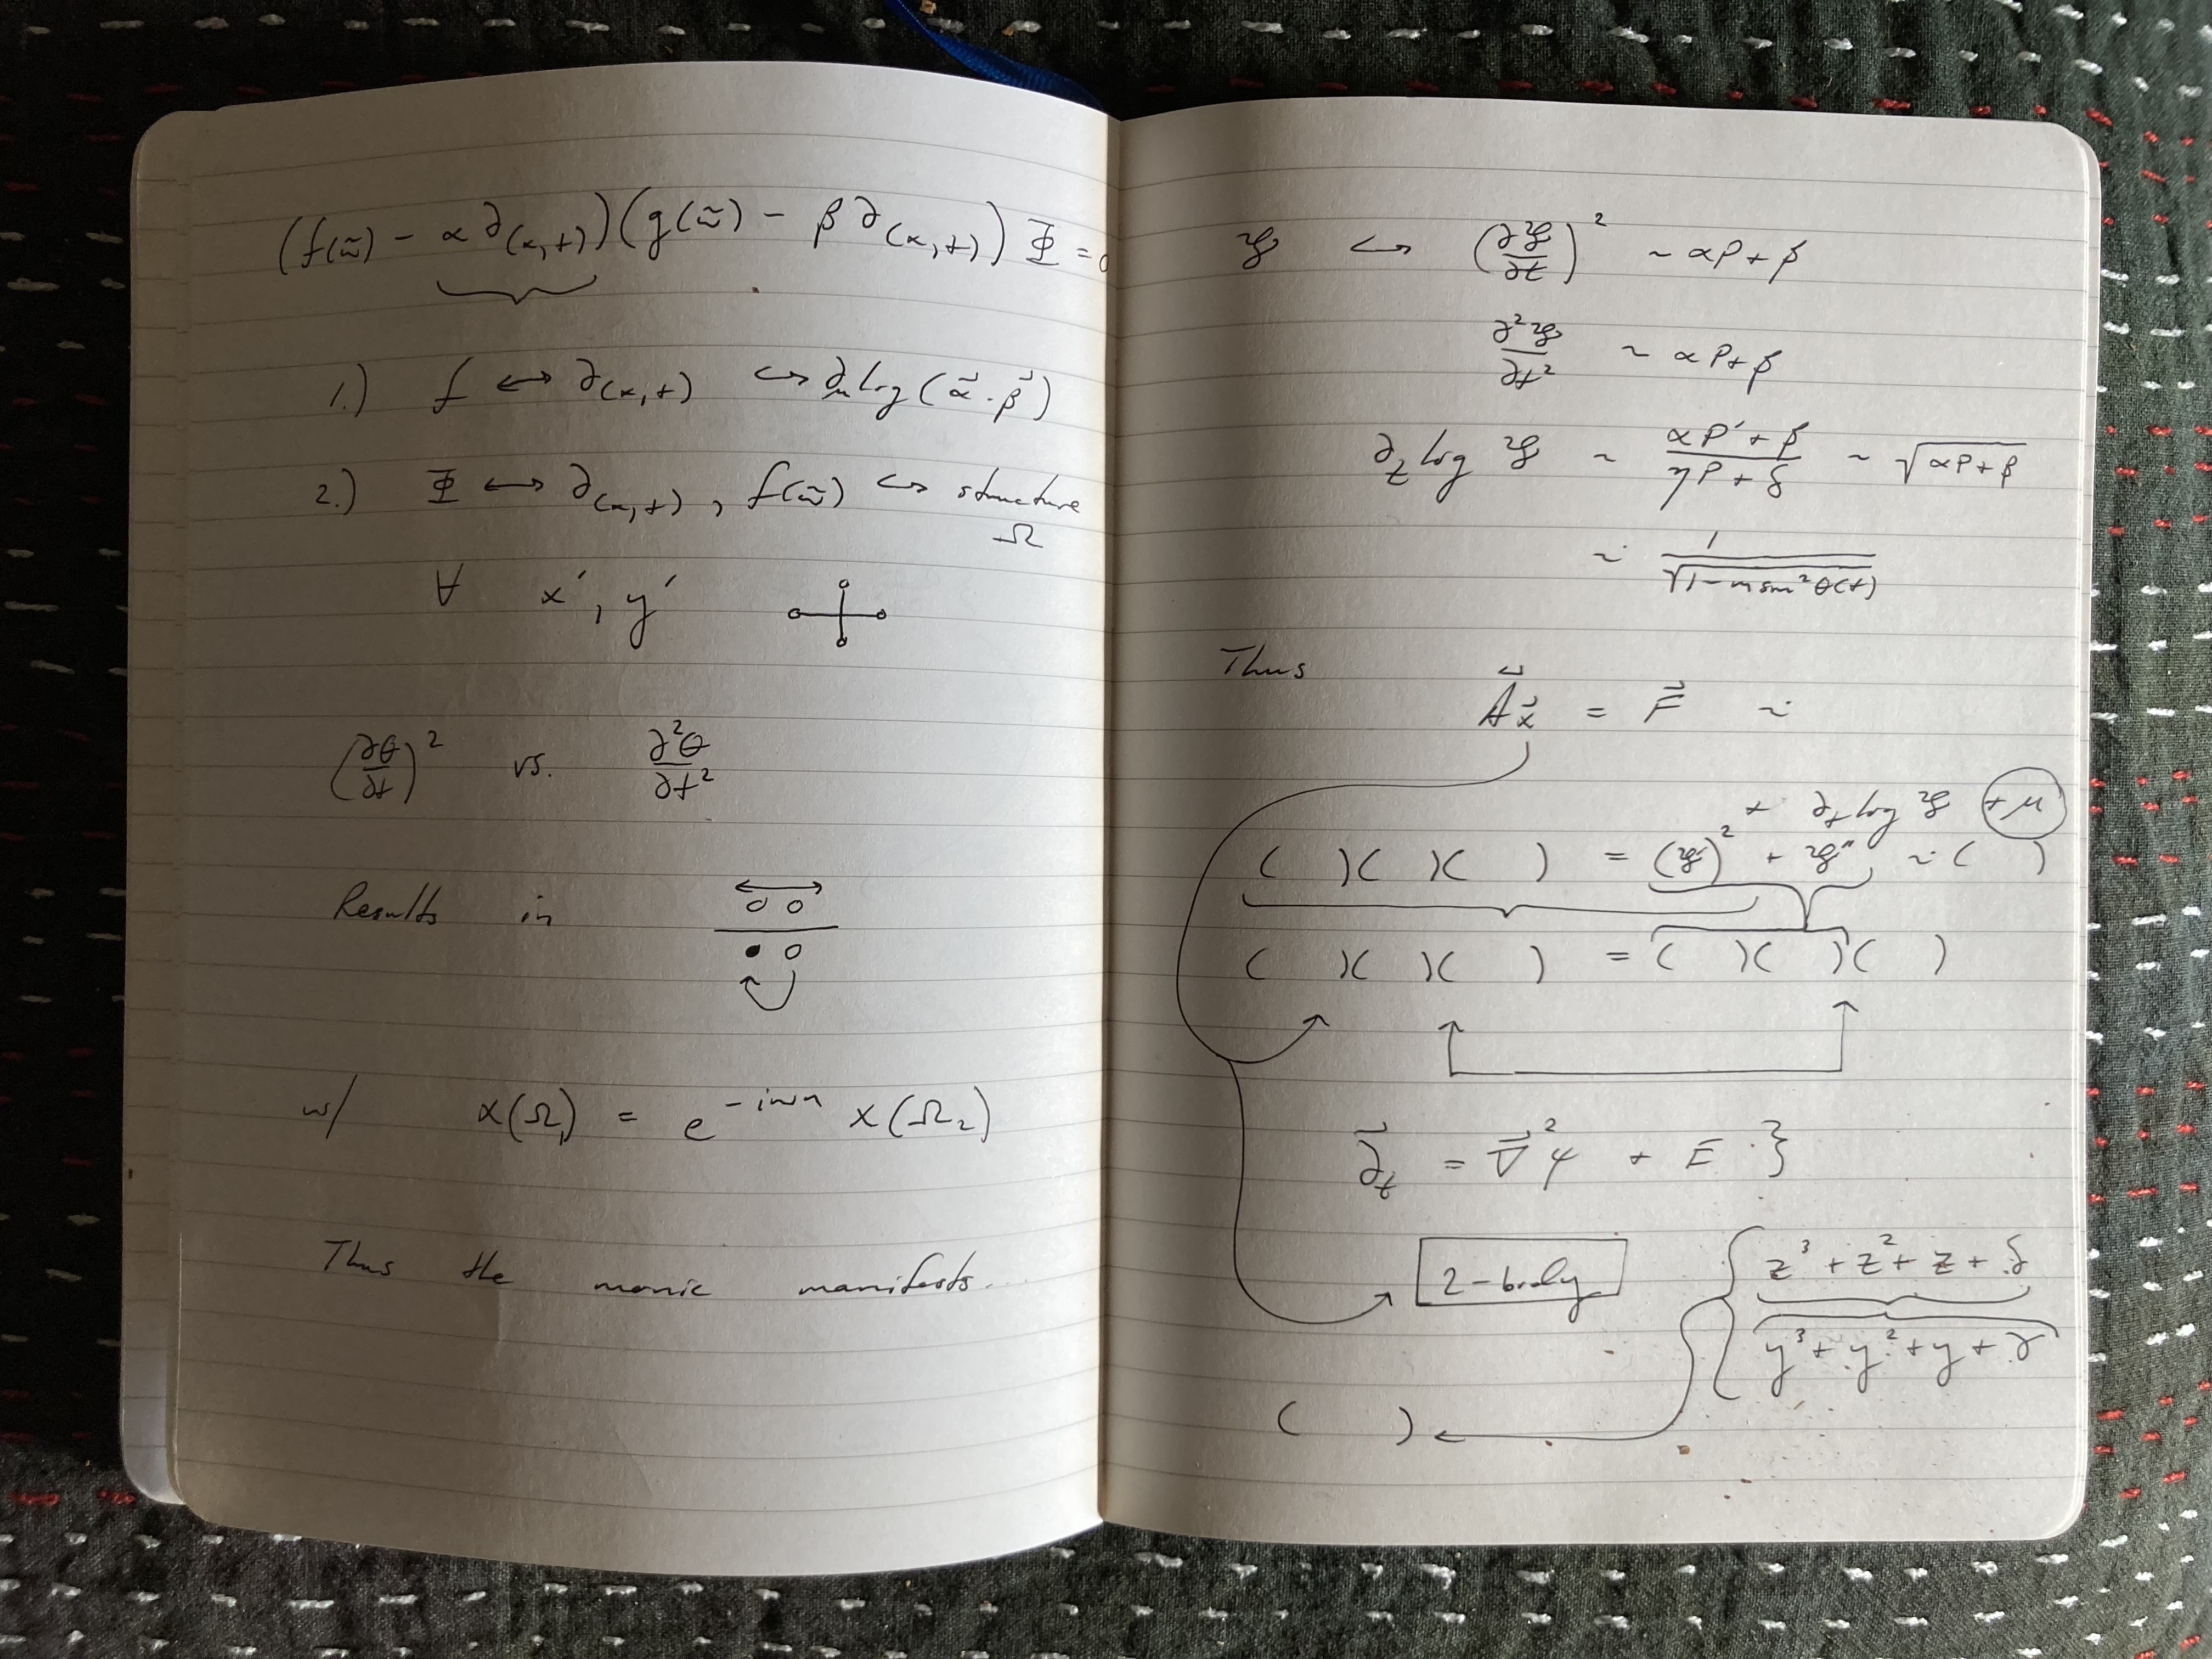 (f(ω̃) - α ∂(x,t))(g(ω̃) - β ∂(x,t)) Φ = 0
1.) f ↔ ∂(x,t) ↪ ∂ log(α⃗ · β⃗)
2.) Φ ↔ ∂(x,t), f(ω̃) ↪ structure
Ω
∀ x′, y′
(∂θ/∂t)² vs. ∂²θ/∂t²
Results in
w/ x(Ω₁) = e^(-iωn) x(Ω₂)
Thus the monic manifests...
𝒵 ↪ (∂𝒵/∂t)² ~ αP + β
∂²𝒵/∂t² ~ αP + β
∂_z log 𝒵 ~ (αP′ + β)/(ηP + δ) ~ √(αP + β)
~ 1/√(1 - m sin²θ(t))
Thus
A⃗x⃗ = F⃗ ~
+ ∂_t log 𝒵 + μ
( )( )( ) = (𝒵′)² + 𝒵″ ~ ( )
( )( )( ) = ( )( )( )
∂⃗_t = ∇⃗²ψ + E }
2-body
{ z³ + z² + z + δ
y³ + y² + y + γ
( )